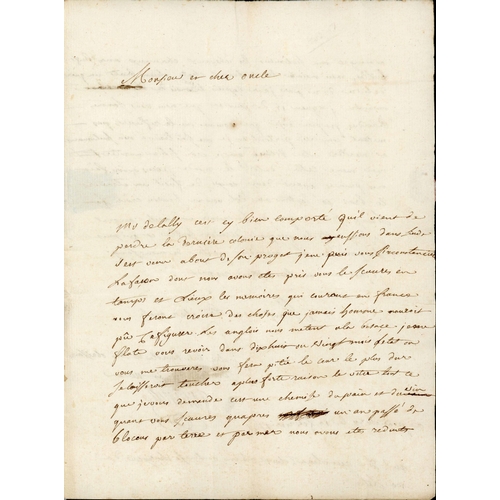 Monsieur et cher oncle
Mr de lally cest cy bien comporté quil vient de
perdre la derniere colonie que nous eussions dans linde
il est venu about de son projet jene puis vous
la facon dont nous avons etes pris vous le scaures en
temps et Lieux les memoires qui courront en france
vous feront croire des choses que jamais homme nauroit
pû les anglois nous metent ala besace je me
flate vous revoir dans dixhuit ou vingt mois
vous me trouveres vous feres pitié le cœur le plus dur
se laisseroit toucher aplus forte raison le votre tout ce
que je vous demande cest une chemise du pain et du vin
quant vous scaures quapres un an passé de
blocous par terre et par mer nous avons ete reduits